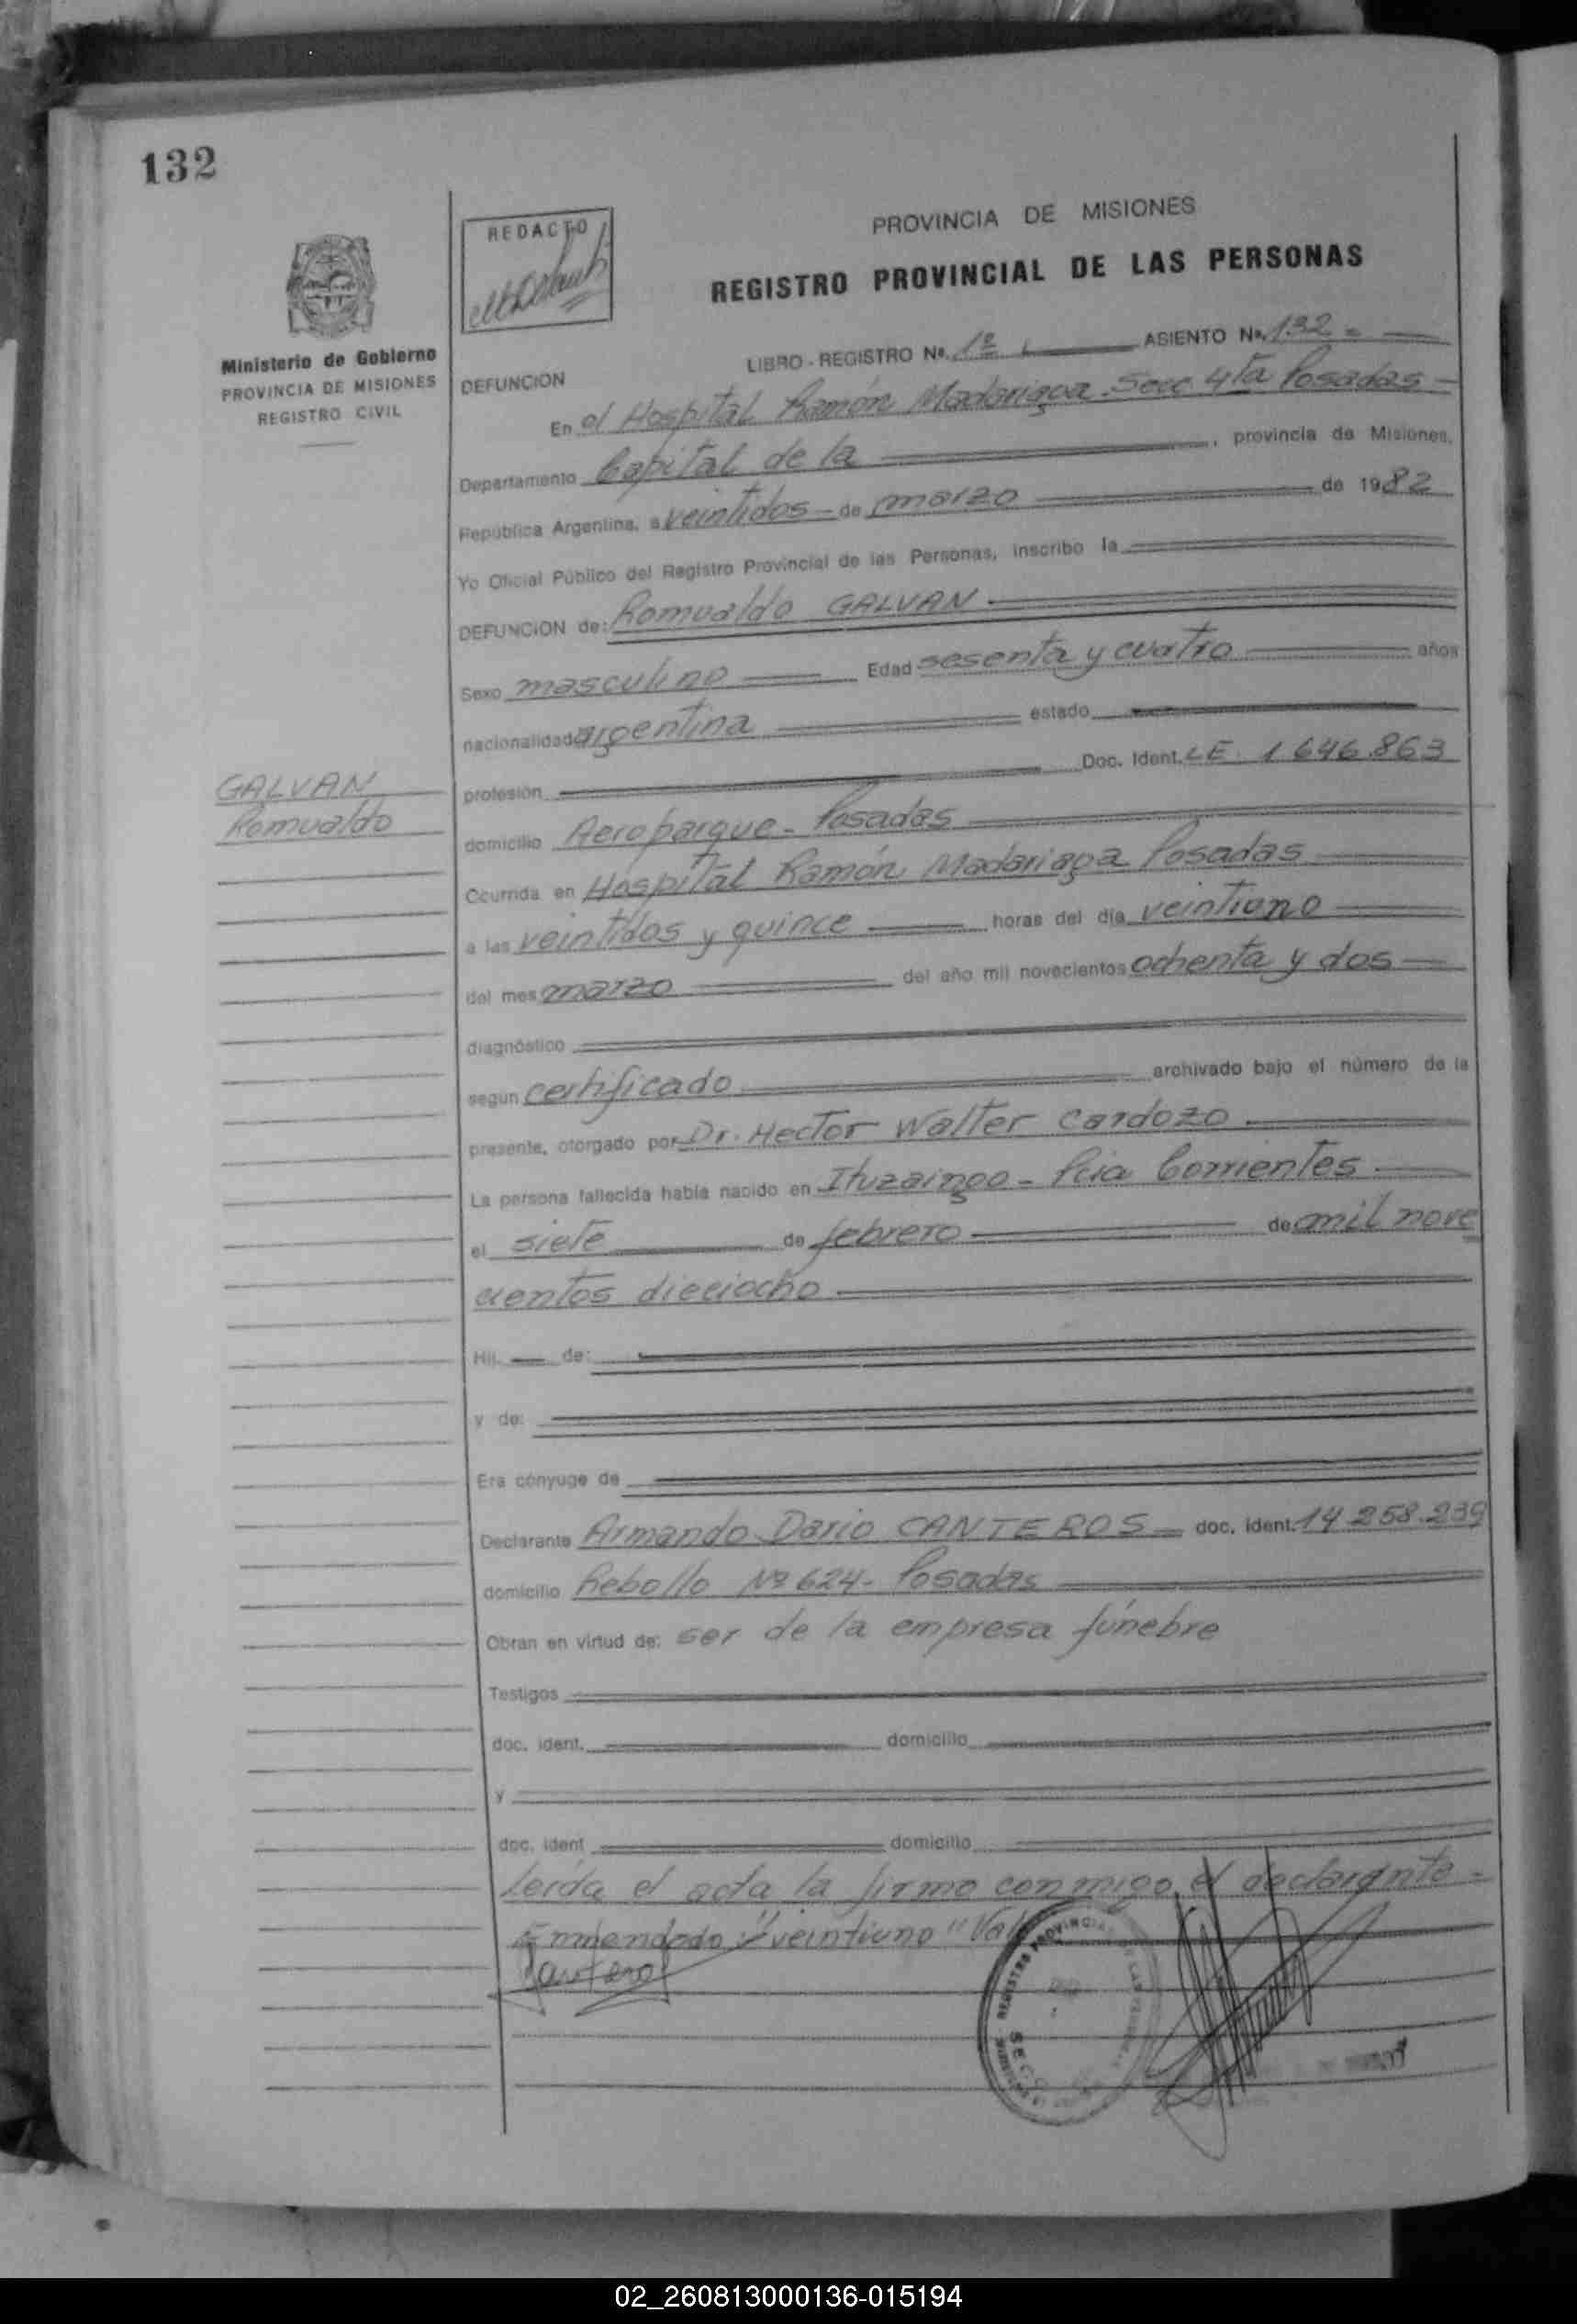 132
PROVINCIA DE MISIONES
REDACTO
REGISTRO PROVINCIAL DE LAS PERSONAS
Ministerio de Gobierno
PROVINCIA DE MISIONES
REGISTRO CIVIL
LIBRO - REGISTRO Nº. 1º ASIENTO Nº. 132
DEFUNCION
En el Hospital Ramón Madariaga Secc 4ta Posadas
Departamento Capital de la , provincia de Misiones,
República Argentina, a veintidos de marzo de 1982
Yo Oficial Público del Registro Provincial de las Personas, inscribo la
DEFUNCION de: Romualdo GALVAN
Sexo masculino Edad sesenta y cuatro años
nacionalidad argentina estado
profesión Doc. Ident. LE. 1.646.863
GALVAN
Romualdo
domicilio Aeroparque - Posadas
Ocurrida en Hospital Ramón Madariaga Posadas
a las veintidos y quince horas del día veintiuno
del mes marzo del año mil novecientos ochenta y dos
diagnóstico
según certificado archivado bajo el número de la
presente, otorgado por Dr. Hector Walter Cardozo
La persona fallecida había nacido en Ituzaingo - Pcia Corrientes
el siete de febrero de mil nove
cientos dieciocho
Hij. de:
y de:
Era cónyuge de
Declarante Armando Dario CANTEROS doc. ident. 14.258.239
domicilio Rebollo Nº 624 - Posadas
Obran en virtud de: ser de la empresa fúnebre
Testigos
doc. ident. domicilio
y
doc. ident domicilio
Leida el acta la firma conmigo el declarante -
Enmendado: "veintiuno" Vale
REGISTRO PROVINCIAL DE LAS